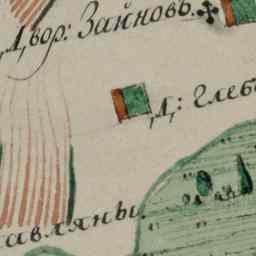 Двор: Заиновъ.
Д: Глебо
авляны.